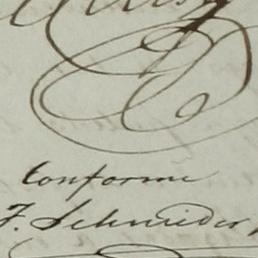 Conforme
F. Schneider